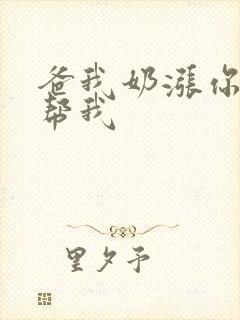 爸我奶涨你
帮我
里夕予